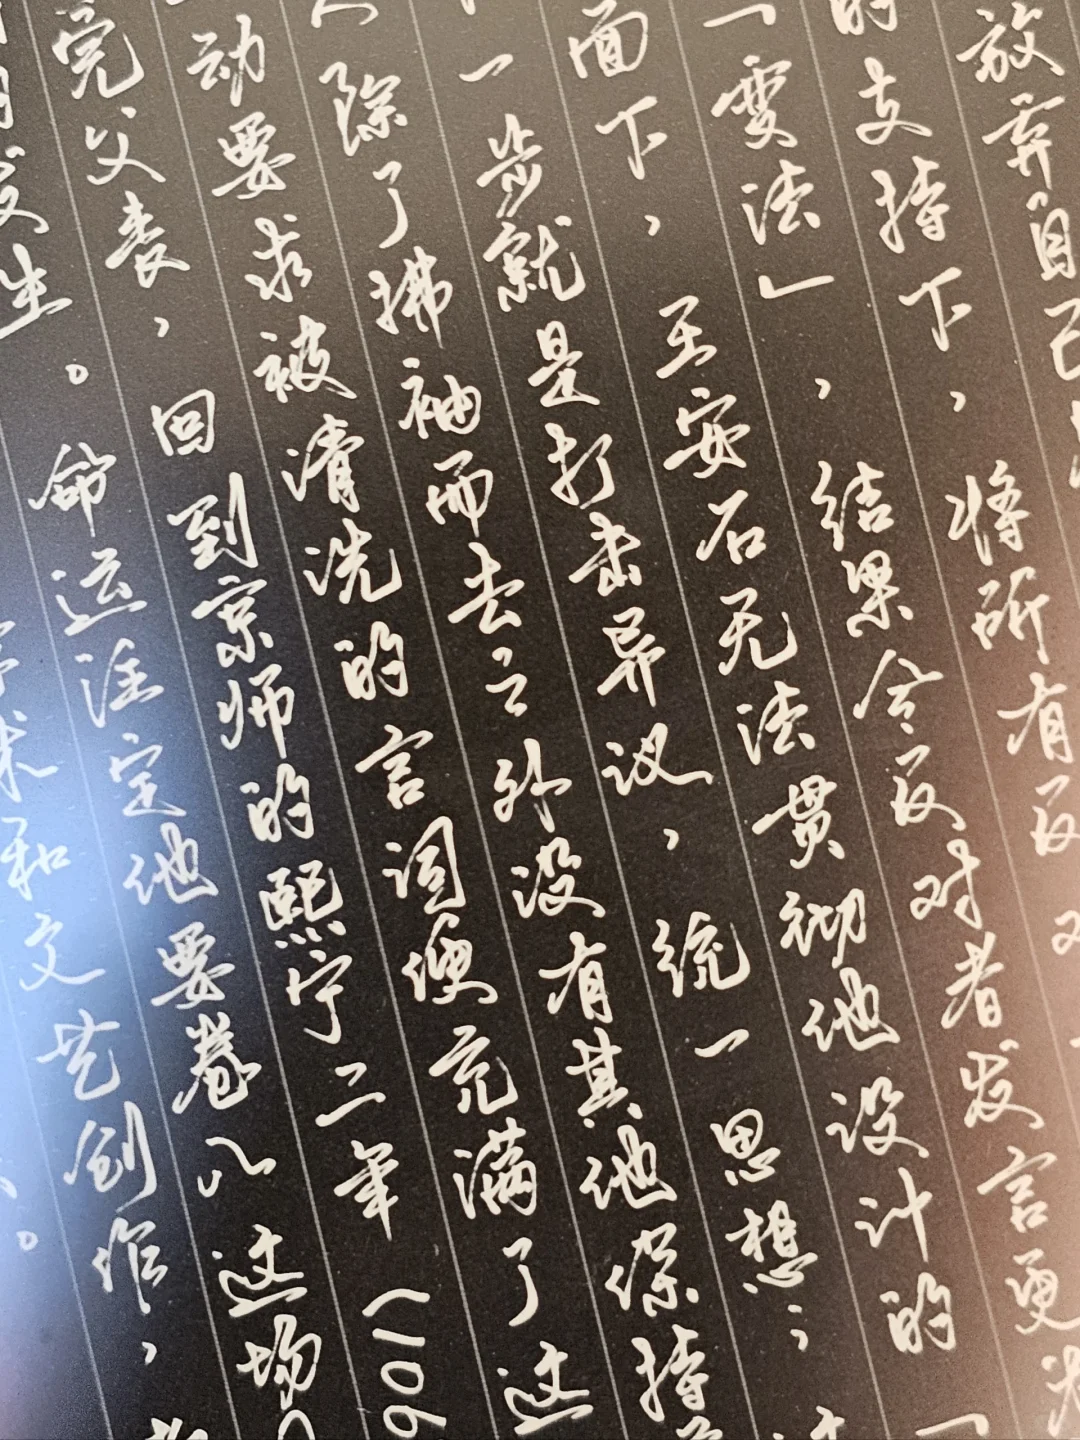 放弃自己
的支持下，将所有反
「变法」，结果令反对者发言更
面下，王安石无法贯彻他设计的「
一步就是打击异议，统一思想；
除了拂袖而去之外没有其他保持
动要求被清洗的言词便充满了这
完父丧，回到京师的熙宁二年（106
发生。命运注定他要卷入这场
术和文艺创作，
。